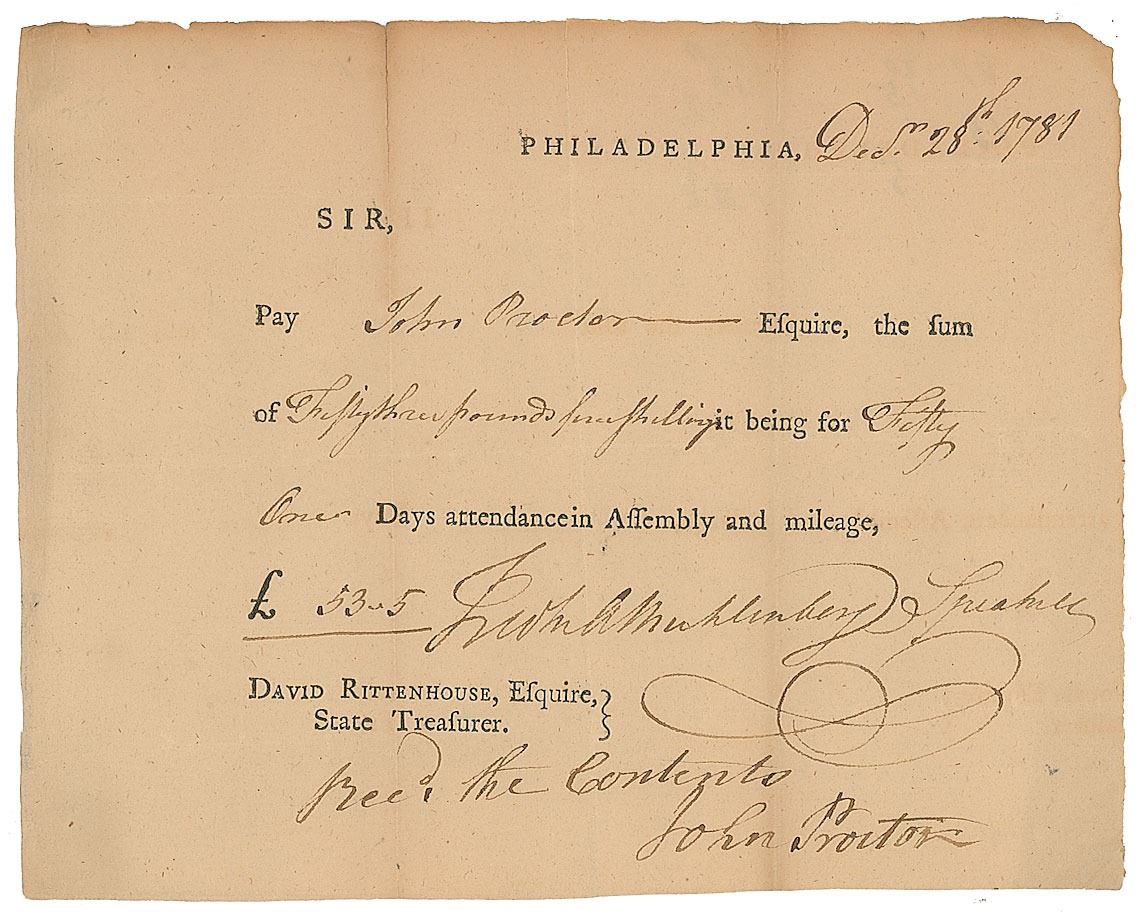 PHILADELPHIA, Decr. 28th. 1781
SIR,
Pay John Proctor Eſquire, the ſum
of Fifty three pounds five ſhillings it being for Fifty
One Days attendance in Aſſembly and mileage,
£ 53 " 5 Fredk A Muhlenberg Speaker
DAVID RITTENHOUSE, Eſquire,
State Treaſurer.
Recd. the Contents
John Proctor